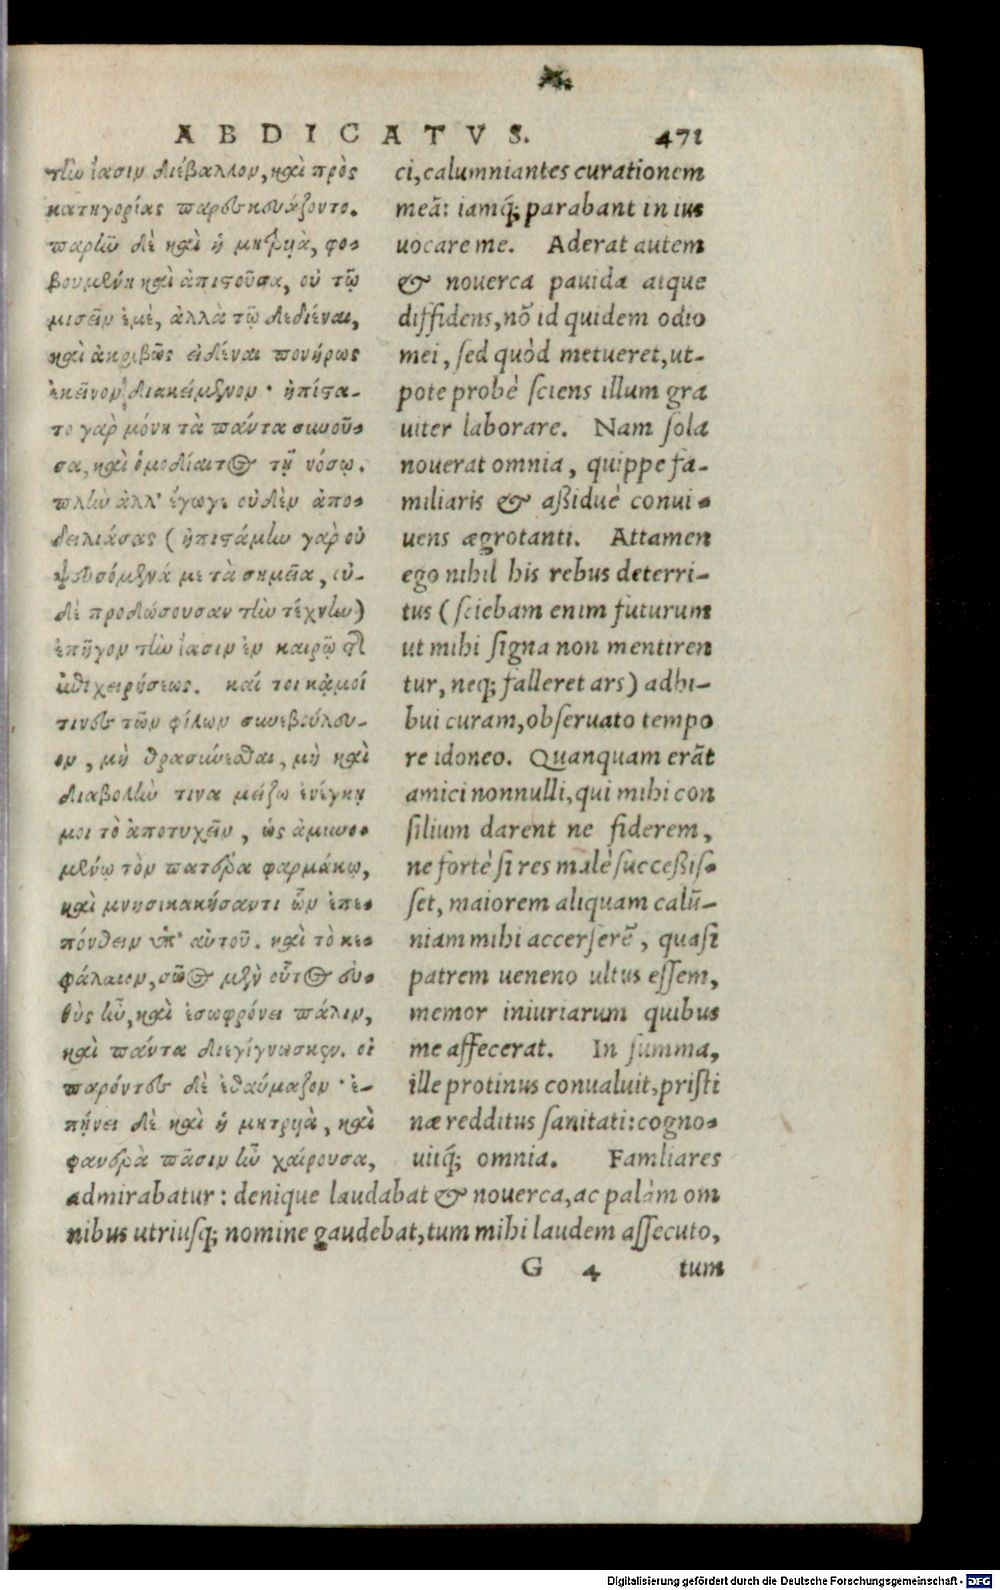 ABDICATVS. 471
τὴν ἴασιν διέβαλλον, καὶ πρὸς
κατηγορίας παρεσκευάζοντο.
παρῆν δὲ καὶ ἡ μητρυιὰ, φο-
βουμένη καὶ ἀπιστοῦσα, οὐ τῷ
μισεῖν ἐμὲ, ἀλλὰ τῷ δεδιέναι,
καὶ ἀκριβῶς εἰδέναι πονήρως
ἐκεῖνον διακείμενον· ἠπίστα-
το γὰρ μόνη τὰ πάντα συνοῦ-
σα, καὶ ὁμοδίαιτος τῇ νόσῳ.
πλὴν ἀλλ' ἔγωγε οὐδὲν ἀπο-
δειλιάσας (ἠπιστάμην γὰρ οὐ
ψευσόμενά με τὰ σημεῖα, οὐ-
δὲ προδώσουσαν τὴν τέχνην)
ἐπῆγον τὴν ἴασιν ἐν καιρῷ τῆς
ἐπιχειρήσεως. καί τοι κᾀμοί
τινες τῶν φίλων συνεβούλευ-
ον, μὴ θρασύνεσθαι, μὴ καὶ
διαβολὴν τινα μείζω ἐνέγκῃ
μοι τὸ ἀποτυχεῖν, ὡς ἀμυνο-
μένῳ τὸν πατέρα φαρμάκῳ,
καὶ μνησικακήσαντι ὧν ἐπε-
πόνθειν ὑπ' αὐτοῦ. καὶ τὸ κε-
φάλαιον, σῶος μὲν οὗτος εὐ-
θὺς ἦν, καὶ ἐσωφρόνει πάλιν,
καὶ πάντα διεγίγνωσκεν. οἱ
παρόντες δὲ ἐθαύμαζον· ἐ-
πῄνει δὲ καὶ ἡ μητρυιὰ, καὶ
φανερὰ πᾶσιν ἦν χαίρουσα,
ci, calumniantes curationem
meã: iamq́; parabant in ius
uocare me. Aderat autem
& nouerca pauida atque
diffidens, nõ id quidem odio
mei, sed quòd metueret, ut-
pote probè sciens illum gra
uiter laborare. Nam sola
nouerat omnia, quippe fa-
miliaris & aßiduè conui-
uens ægrotanti. Attamen
ego nihil his rebus deterri-
tus (sciebam enim futurum
ut mihi signa non mentiren
tur, neq; falleret ars) adhi-
bui curam, obseruato tempo
re idoneo. Quanquam erãt
amici nonnulli, qui mihi con
silium darent ne fiderem,
ne fortè si res malè succeßis-
set, maiorem aliquam calū-
niam mihi accerserẽ, quasi
patrem ueneno ultus essem,
memor iniuriarum quibus
me affecerat. In summa,
ille protinus conualuit, pristi
næ redditus sanitati: cogno-
uitq́; omnia. Familiares
admirabatur: denique laudabat & nouerca, ac palàm om
nibus utriusq; nomine gaudebat, tum mihi laudem assecuto,
G 4 tum
Digitalisierung gefördert durch die Deutsche Forschungsgemeinschaft - DFG